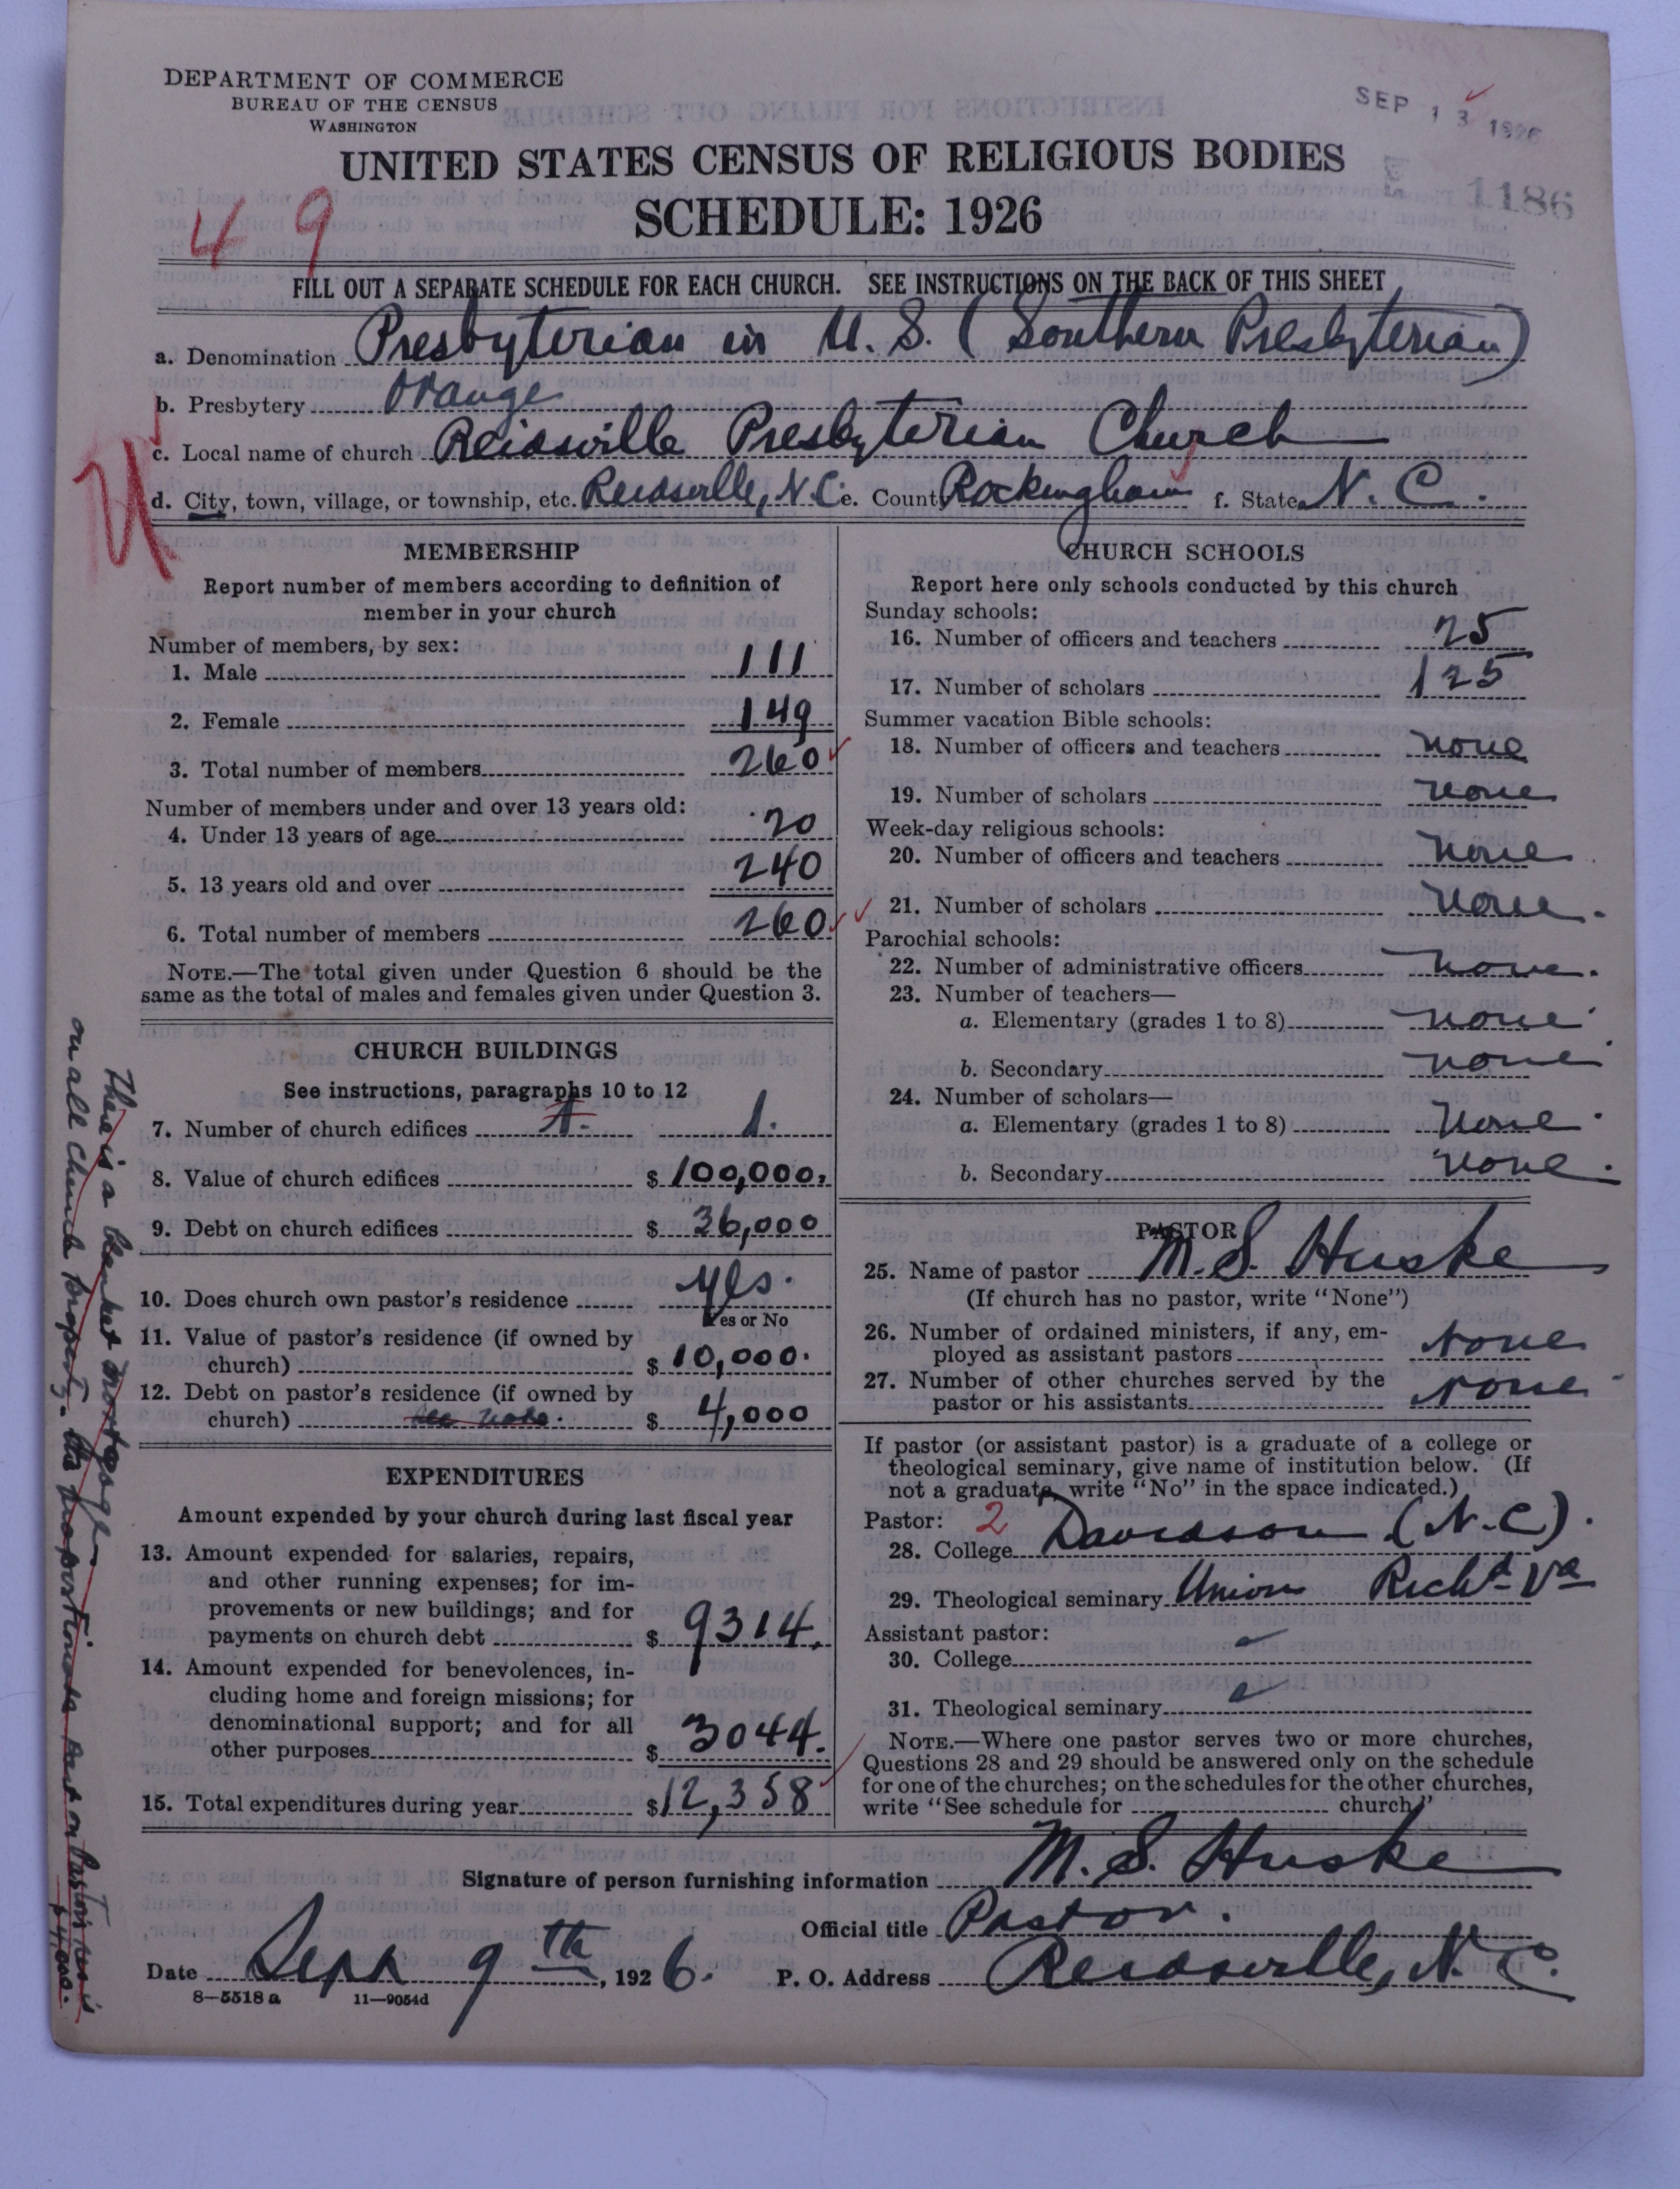 DEPARTMENT OF COMMERCE
BUREAU OF THE CENSUS
WASHINGTON
SEP 13 1926
UNITED STATES CENSUS OF RELIGIOUS BODIES
1186
SCHEDULE: 1926
49
FILL OUT A SEPARATE SCHEDULE FOR EACH CHURCH. SEE INSTRUCTIONS ON THE BACK OF THIS SHEET
a. Denomination Presbyterian in U.S. (Southern Presbyterian)
b. Presbytery Orange
c. Local name of church Reidsville Presbyterian Church
d. City, town, village, or township, etc. Reidsville, N.C. e. County Rockingham f. State N.C.
MEMBERSHIP
Report number of members according to definition of
member in your church
Number of members, by sex:
1. Male 111
2. Female 149
3. Total number of members 260
Number of members under and over 13 years old:
4. Under 13 years of age 20
5. 13 years old and over 240
6. Total number of members 260
NOTE.—The total given under Question 6 should be the
same as the total of males and females given under Question 3.
CHURCH BUILDINGS
See instructions, paragraphs 10 to 12
7. Number of church edifices 1. 1.
8. Value of church edifices $ 100,000.
9. Debt on church edifices $ 36,000
10. Does church own pastor's residence yes.
Yes or No
11. Value of pastor's residence (if owned by
church) $ 10,000.
12. Debt on pastor's residence (if owned by
church) see note. $ 4,000
EXPENDITURES
Amount expended by your church during last fiscal year
13. Amount expended for salaries, repairs,
and other running expenses; for im-
provements or new buildings; and for
payments on church debt $ 9314.
14. Amount expended for benevolences, in-
cluding home and foreign missions; for
denominational support; and for all
other purposes $ 3044.
15. Total expenditures during year $12,358
CHURCH SCHOOLS
Report here only schools conducted by this church
Sunday schools:
16. Number of officers and teachers 25
17. Number of scholars 125
Summer vacation Bible schools:
18. Number of officers and teachers none
19. Number of scholars none
Week-day religious schools:
20. Number of officers and teachers none
21. Number of scholars none.
Parochial schools:
22. Number of administrative officers none.
23. Number of teachers—
a. Elementary (grades 1 to 8) none
b. Secondary none
24. Number of scholars—
a. Elementary (grades 1 to 8) none.
b. Secondary none.
PASTOR
25. Name of pastor M. S. Huske
(If church has no pastor, write "None")
26. Number of ordained ministers, if any, em-
ployed as assistant pastors None
27. Number of other churches served by the
pastor or his assistants None
If pastor (or assistant pastor) is a graduate of a college or
theological seminary, give name of institution below. (If
not a graduate, write "No" in the space indicated.)
Pastor: 2
28. College Davidson (N.C).
29. Theological seminary Union Richd Va
Assistant pastor:
30. College
31. Theological seminary
NOTE.—Where one pastor serves two or more churches,
Questions 28 and 29 should be answered only on the schedule
for one of the churches; on the schedules for the other churches,
write "See schedule for church."
Signature of person furnishing information M. S. Huske
Official title Pastor.
Date Sept 9th, 1926. P. O. Address Reidsville, N.C.
8—5518a 11—9054d
There is a blanket mortgage
on all church property. the proportionate part on Pastor's res is
$4,000.